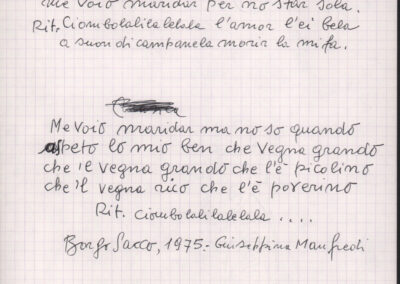 che voio maridar per no star sola.
Rit. Ciombolalilalelala l'amor l'ei bela
a suon di campanela morir la mi fa.
Me voio maridar ma no so quando
aspeto lo mio ben che vegna grando
che 'l vegna grando che l'è picolino
che 'l vegna rico che l'è poverino
Rit. Ciombolalilalelala ....
Borgo Sacco, 1975.- Giuseppina Manfredi